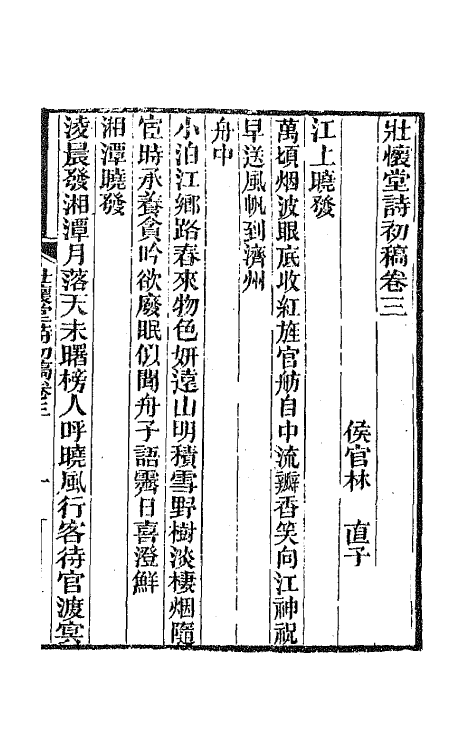 壯懷堂詩初稿卷三
侯官林　直子
江上曉發
萬頃烟波眼底收紅旌官舫自中流瓣香笑向江神祝
早送風帆到濟州
舟中
小泊江鄉路春來物色妍遠山明積雪野樹淡棲烟隨
宦時承養貪吟欲廢眠似聞舟子語霽日喜澄鮮
湘潭曉發
淩晨發湘潭月落天未曙榜人呼曉風行客待官渡寅
壯懷堂詩初稿卷三
一